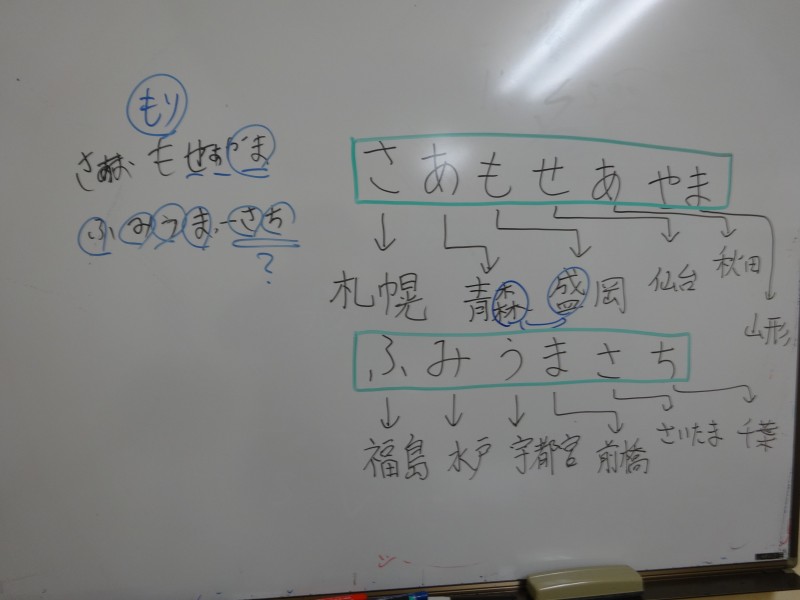 もり
ふみうま
さち
?
さあもせあやま
札幌 青森 盛岡 仙台 秋田 山形
ふみうまさち
福島 水戸 宇都宮 前橋 さいたま 千葉